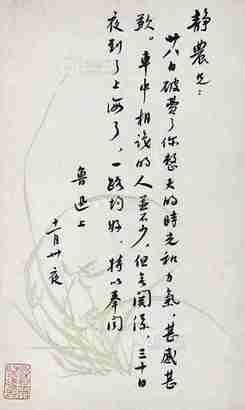 静農兄：
廿八日破费了你整天的時光和力氣，甚感甚
歉。車中相識的人並不少，但無関係，三十日
夜到了上海了，一路均好，特以奉聞
魯迅上
十一月卅夜